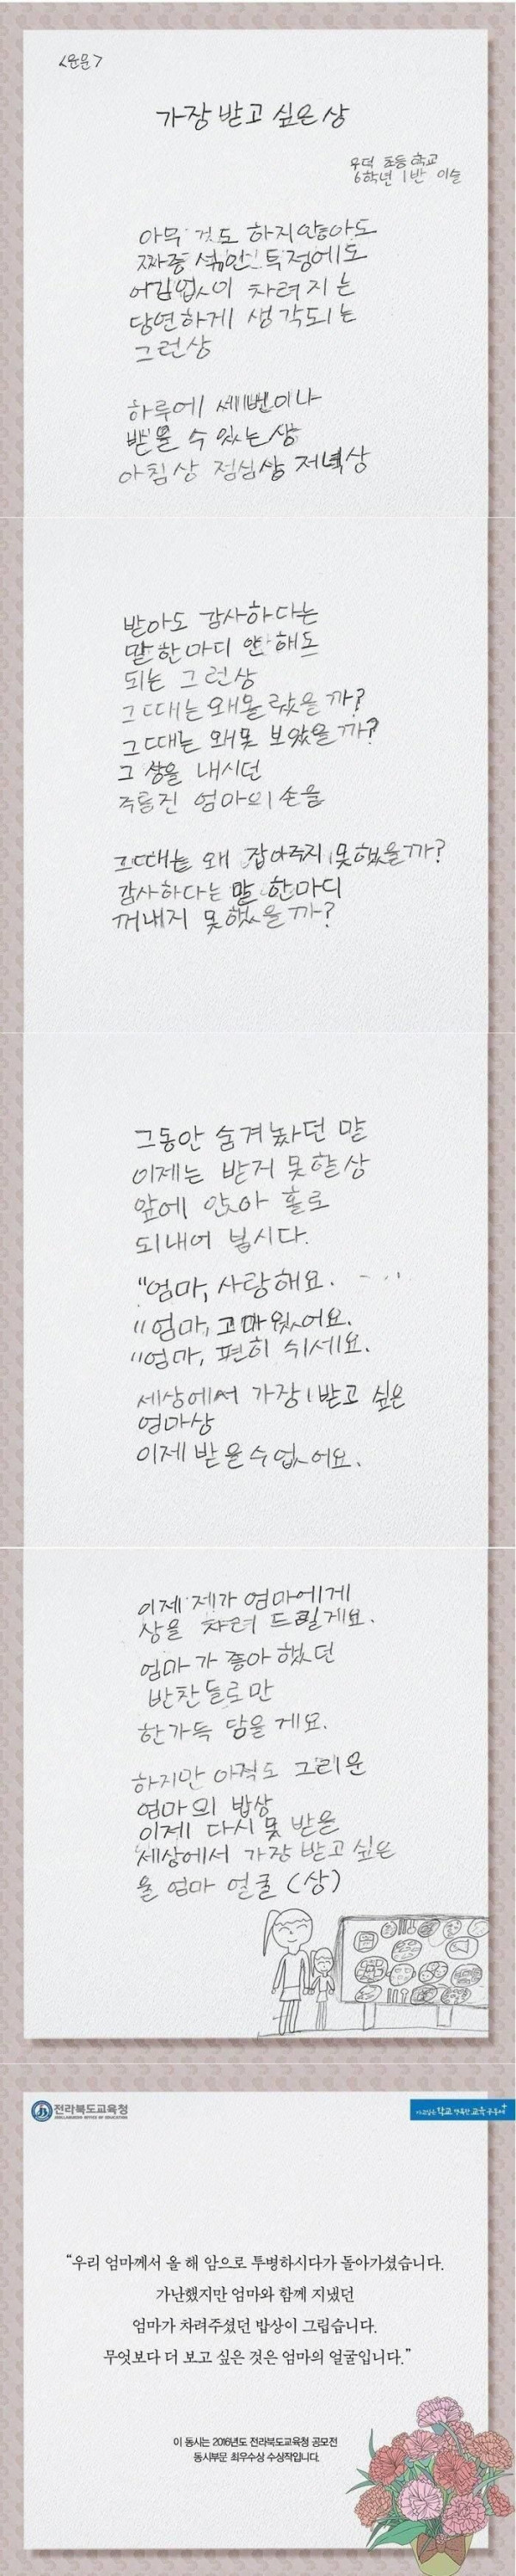 <운문>
가장 받고 싶은 상
우덕 초등학교
6학년 1반 이슬
아무 것도 하지않아도
짜증 섞인 투정에도
어김없이 차려지는
당연하게 생각되는
그런상
하루에 세번이나
받을 수 있는 상
아침상 점심상 저녁상
받아도 감사하다는
말 한마디 안 해도
되는 그런상
그때는 왜몰랐을까?
그때는 왜못 보았을까?
그 상을 내시던
주름진 엄마의 손을
그때는 왜 잡아주지 못했을까?
감사하다는 말 한마디
꺼내지 못했을까?
그동안 숨겨놨던 말
이제는 받지 못할상
앞에 앉아 홀로
되내어 봅시다.
"엄마, 사랑해요. - ...
"엄마, 고마웠어요.
"엄마, 편히 쉬세요.
세상에서 가장 받고 싶은
엄마상
이제 받을수 없어요.
이제 제가 엄마에게
상을 차려 드릴게요.
엄마가 좋아했던
반찬들로만
한가득 담을게요.
하지만 아직도 그리운
엄마의 밥상
이제 다시 못 받을
세상에서 가장 받고 싶은
울 엄마 얼굴 (상)
전라북도교육청
JEOLLABUKDO OFFICE OF EDUCATION
가고싶은 학교 행복한 교육공동체
"우리 엄마께서 올 해 암으로 투병하시다가 돌아가셨습니다.
가난했지만 엄마와 함께 지냈던
엄마가 차려주셨던 밥상이 그립습니다.
무엇보다 더 보고 싶은 것은 엄마의 얼굴입니다."
이 동시는 2016년도 전라북도교육청 공모전
동시부문 최우수상 수상작입니다.